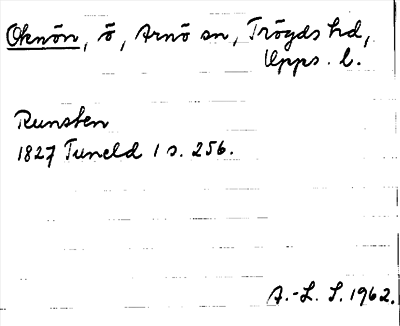 Oknön, ö, Arnö sn, Trögds hd,
Upps. l.
Runsten
1827 Tuneld 1 s. 256.
A.-L. S. 1962.